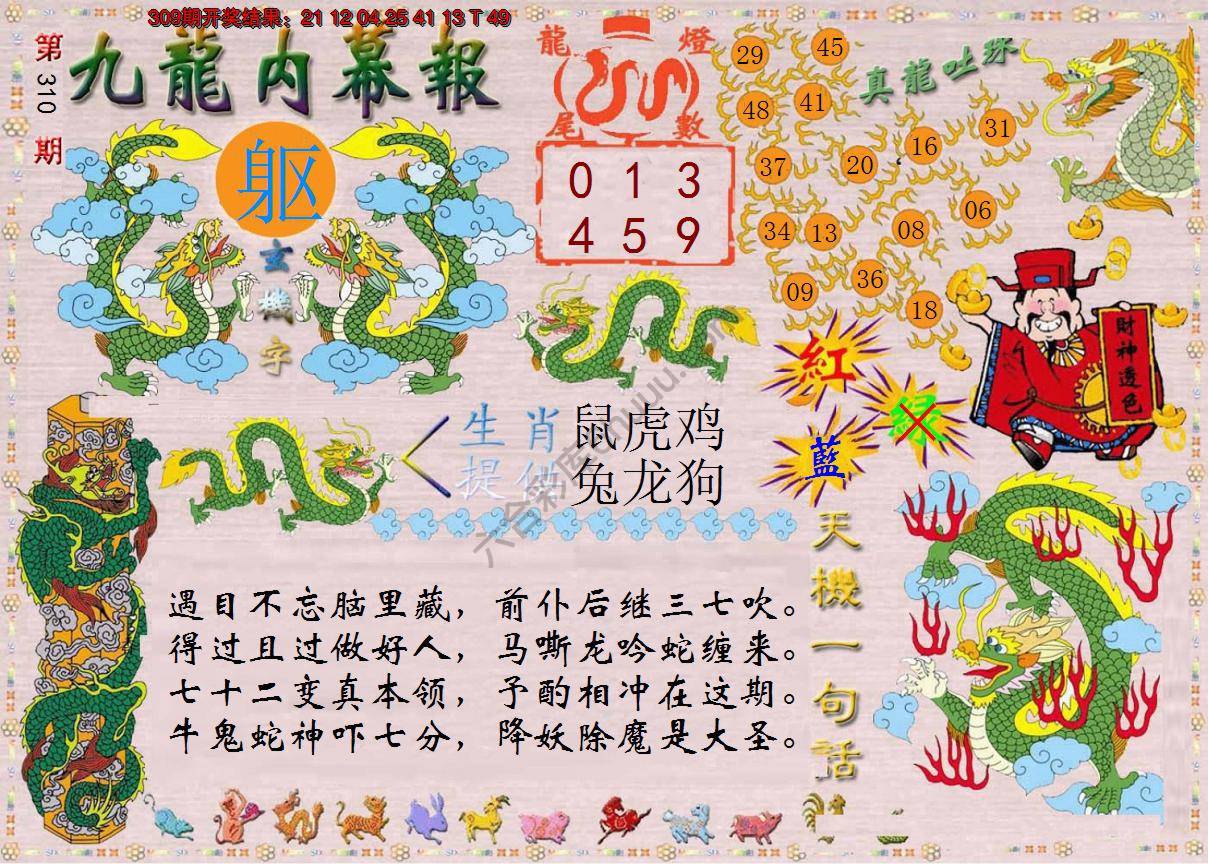 309期开奖结果：21 12 04 25 41 13 T 49
第310期
九龍内幕報
躯
玄機字
龍燈
尾數
0 1 3
4 5 9
真龍吐珠
29
45
48
41
31
16
37
20
06
34
13
08
36
09
18
財神透色
紅
绿
藍
生肖
提供
鼠虎鸡
兔龙狗
天機一句話
遇目不忘脑里藏，前仆后继三七吹。
得过且过做好人，马嘶龙吟蛇缠来。
七十二变真本领，予酌相冲在这期。
牛鬼蛇神吓七分，降妖除魔是大圣。